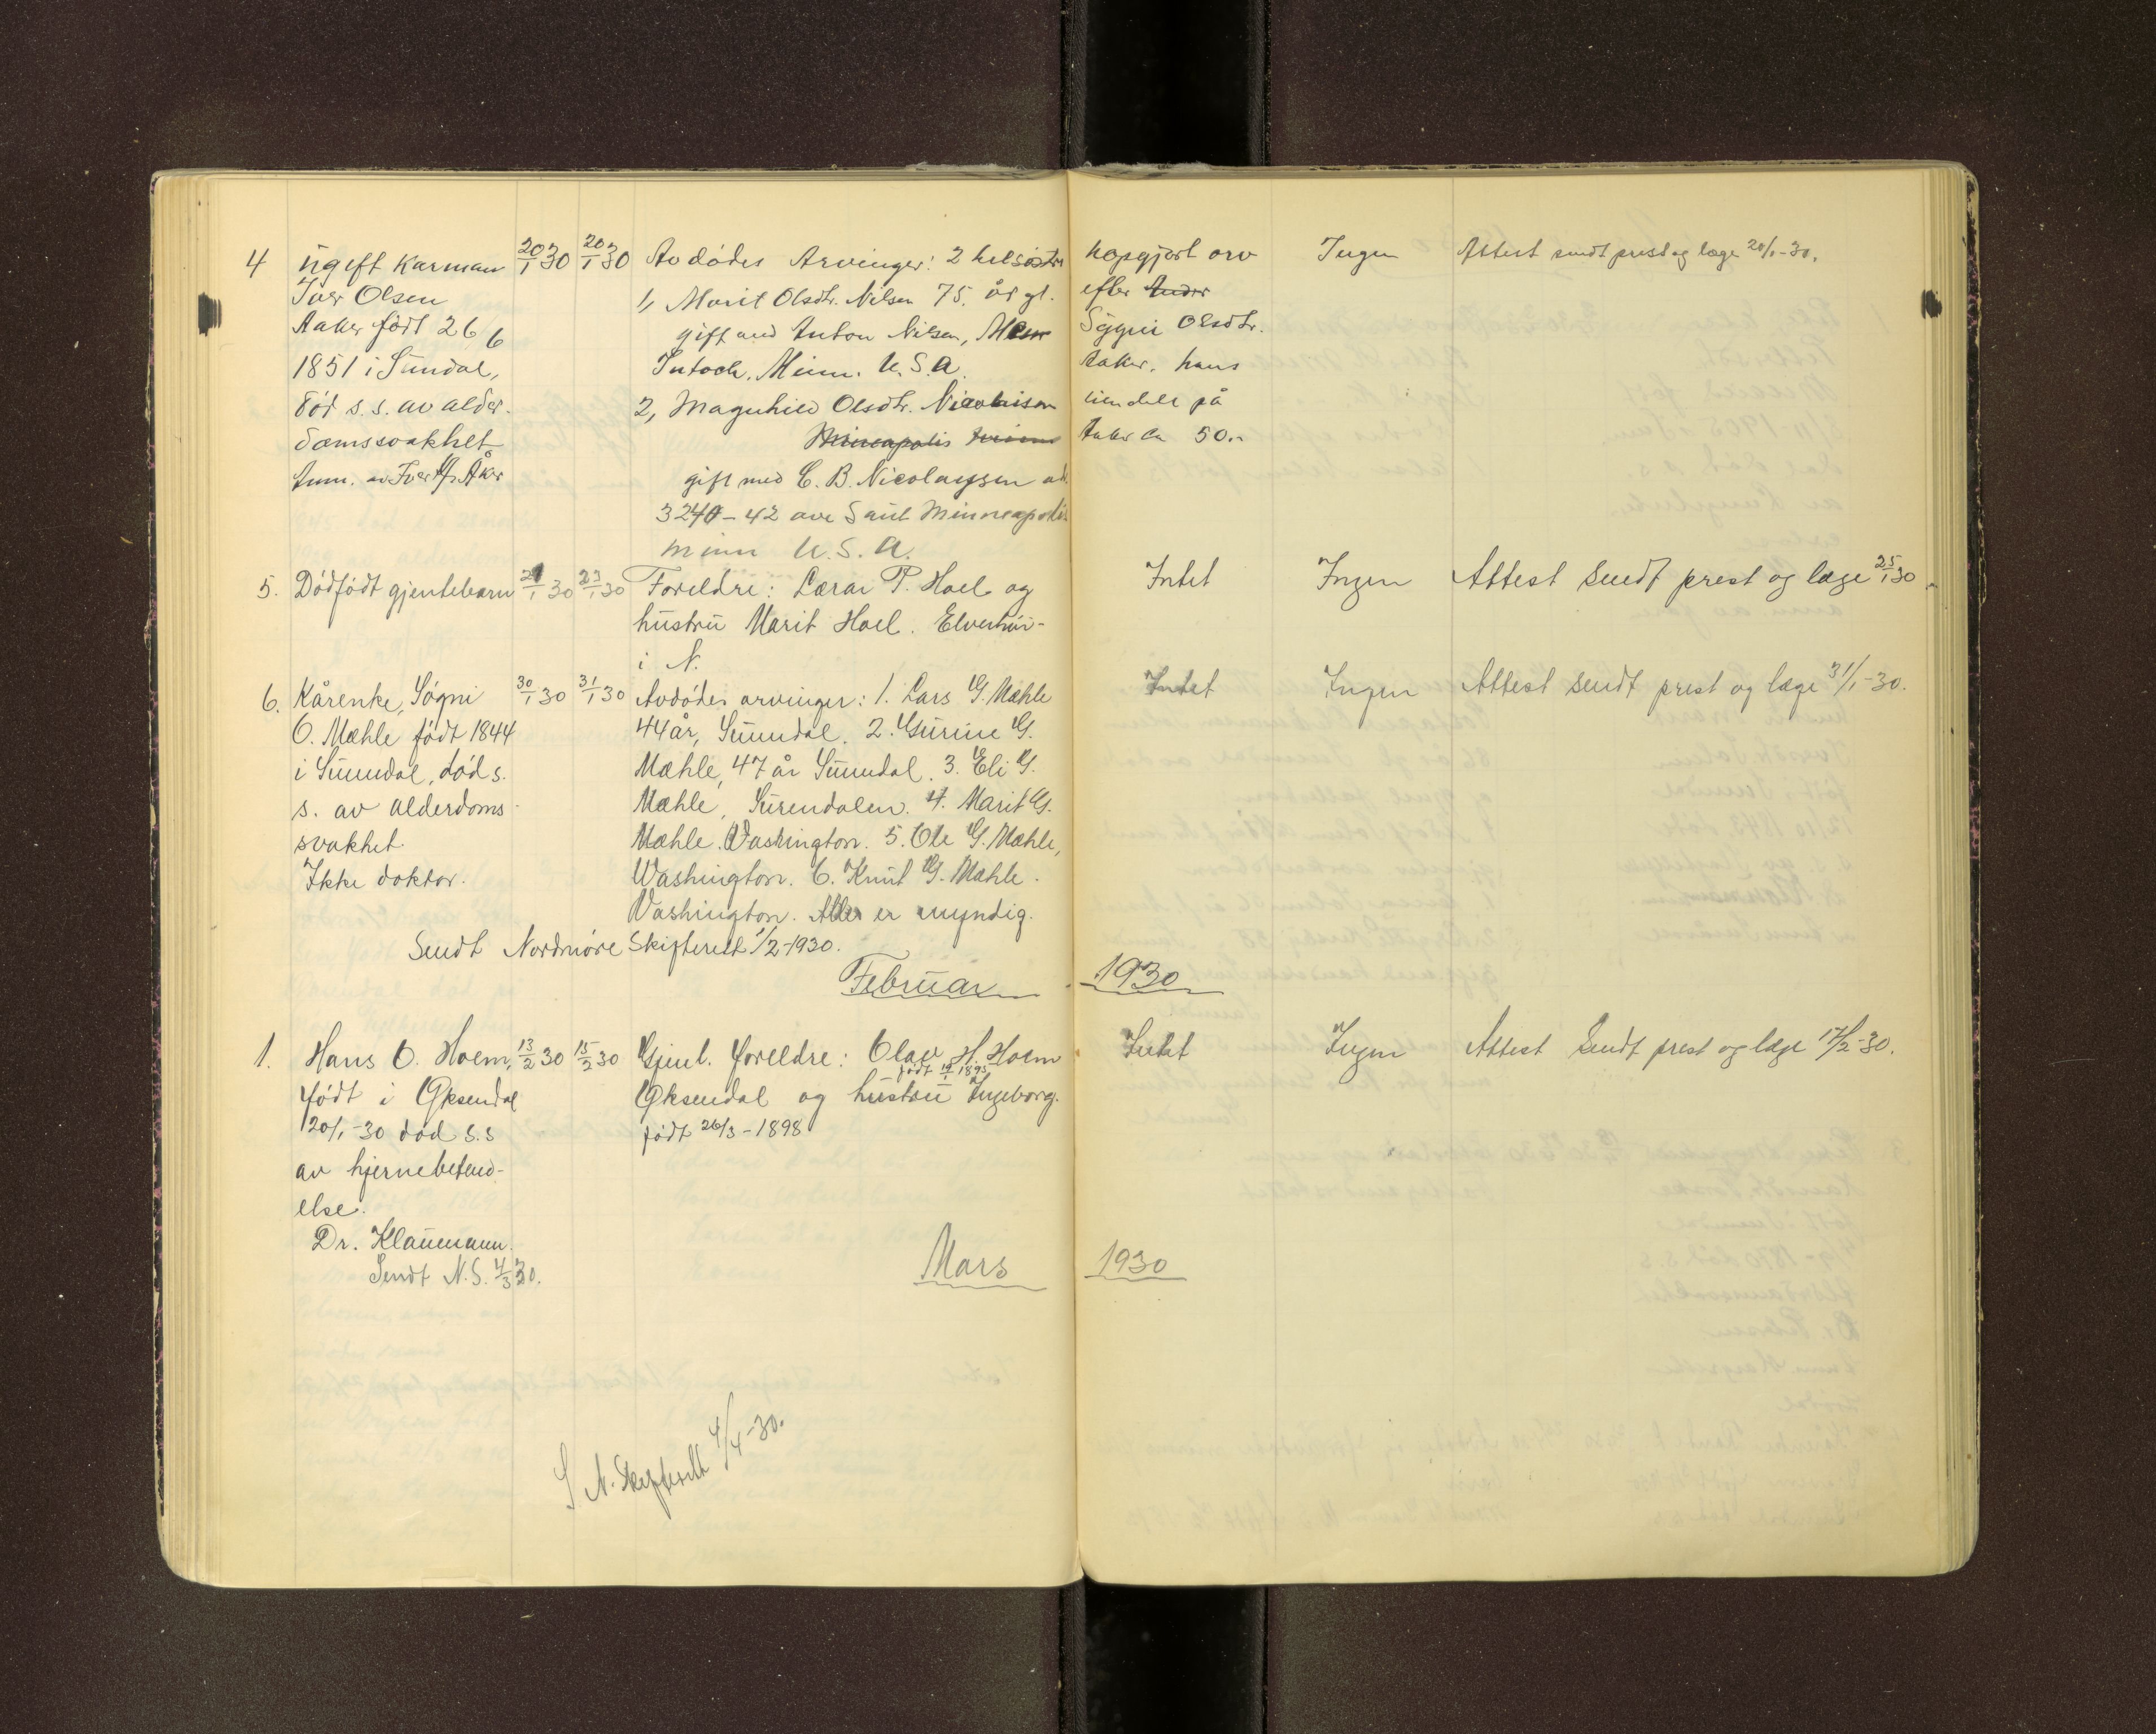 4 ugift Karman 20/1 30 20/1 30 Avdødes Arvinger: 2 helsøstre uopgjort arv Ingen Attest sendt prest og læge 20/1-30.
Iver Olsen 1, Marit Olsdtr. Nilsen 75. år gl. efter
Aaker født 26/6 gift med Anton Nilsen, Sygni Olsdtr.
1851 i Sundal, Minn. U.S.A. Aaker. hans
død s. s. av alder- 2, Magnhild Olsdtr. på
domssvakhet Mineapolis Aaker ca 50.-
Anm. av Iver Åker gift med C. B. Nicolaysen ad.
3240-42 ave Saut Minneapolis
Minn U.S.A.
5. Dødfødt gjentebarn 21/1 30 23/1 30 Foreldre: Lærar P. Hoel og Intet Ingen Attest Sendt prest og læge 25/1 30
hustru Marit Hoel. Elverhøi-
i N.
6. Kårenke, Søgni 30/1 30 31/1 30 Avdødes arvinger: 1. Lars G. Mæhle Intet Ingen Attest Sendt prest og læge 31/1-30.
O. Mæhle født 1844 44 år, Sunndal. 2. Gurine G.
i Sunndal, død s. Mæhle, 47 år Sunndal. 3. Eli G.
s. av alderdoms- Mæhle, Surendalen. 4. Marit G.
svakhet Mæhle. Washington. 5. Ole G. Mæhle,
Ikke doktor. Washington. 6. Knut G. Mæhle.
Washington. Alle er myndig.
Sendt Nordmøre Skifterett 1/2-1930.
Februar 1930
1. Hans O. Hoem, 13/2 30 15/2 30 Gjenl. foreldre: Olav H. Hoem Intet Ingen Attest Sendt prest og læge 17/2-30.
født 19/1 1893
født i Øksendal Øksendal og hustru Ingeborg.
20/1-30 død s.s født 26/3-1898
av hjernebetend-
else.
Dr. Klaumann.
Sendt N.S. 4/3 30.
Mars 1930
S N. Skifterett 4/4-30.